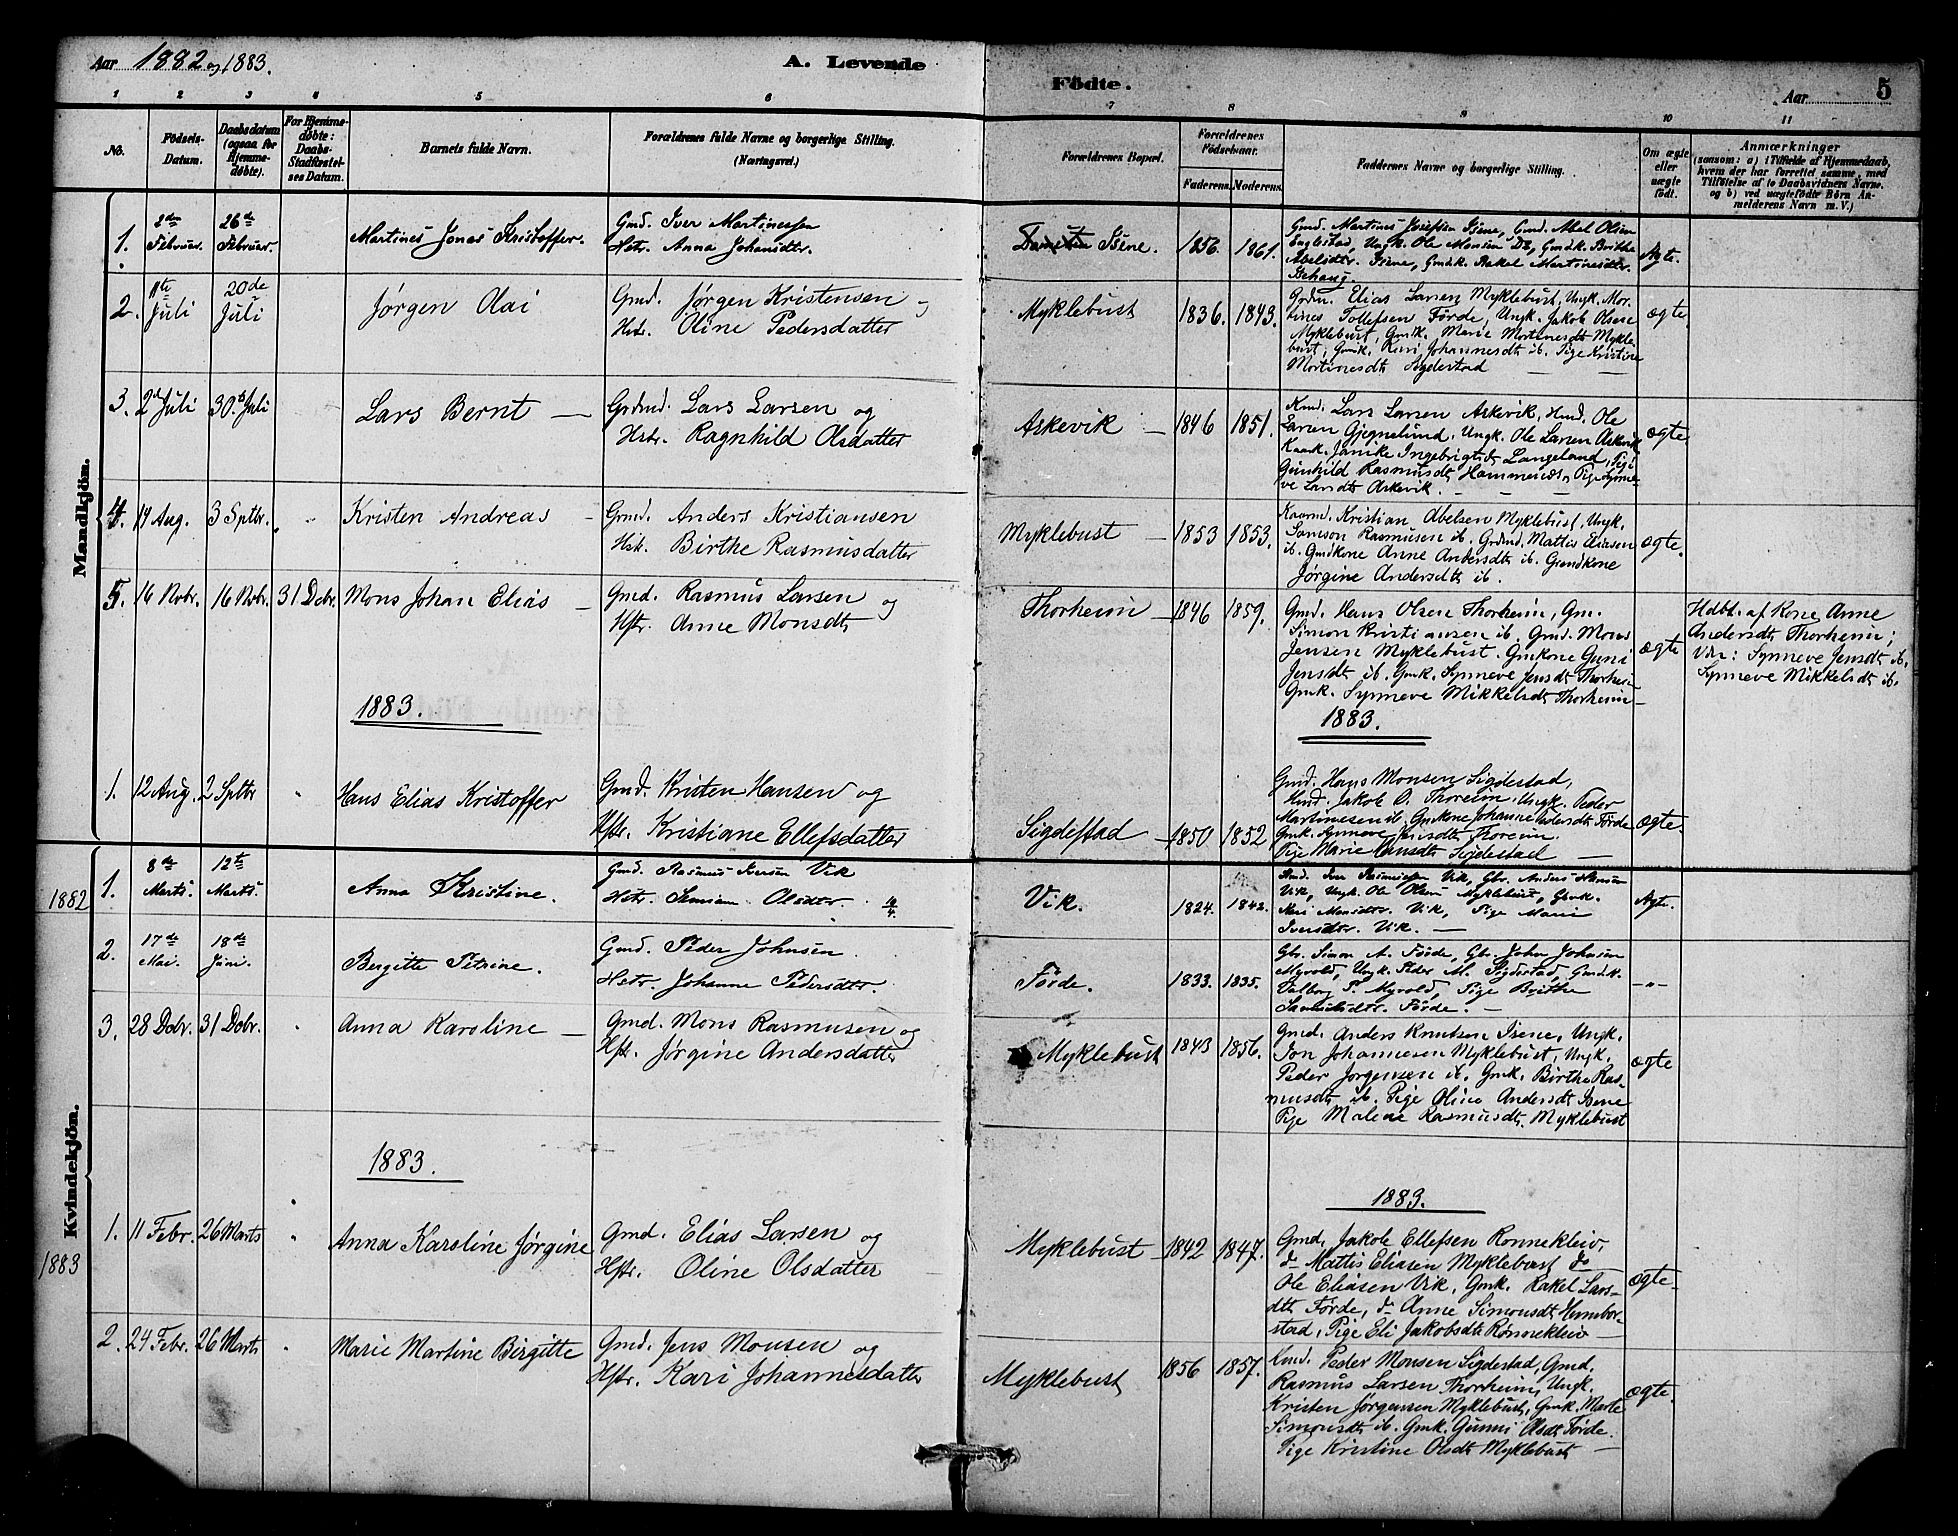 Aar 1882 og 1883.
A. Levende
Födte.
Aar
5
1 2 3 4 5 6 7 8 9 10 11
No.
Födsels-
Datum.
Daabsdatum
(ogsaa for
Hjemme-
döbte).
For Hjemme-
döbte:
Daabs-
Stadfæstel-
ses Datum.
Barnets fulde Navn.
Forældrenes fulde Navne og borgerlige Stilling.
(Næringsvei.)
Forældrenes Bopæl.
Forældrenes
Födselsaar.
Faderens. Moderens.
Faddernes Navne og borgerlige Stilling.
Om ægte
eller
uægte
födt.
Anmærkninger
(saasom: a) i Tilfælde af Hjemmedaab,
hvem der har forrettet samme, med
Tilföielse af to Daabsvidners Navne.
og b) ved uægtefödte Börn An-
melderens Navn m. V.)
Mandkjön.
1. 2den Februar. 26de Februar. Martines Jonas Kristoffer.
Gmd. Iver Martinessen
Hstr. Anna Johansdtr.
Isene. 1856. 1861.
Gmd. Martines Josefsen Isene, Gmd. Abel Olsen
Ungk. Ole Monsen Do, Gmdk. Brithe
Abelsdtr. Isene, Gmdk. Rakel Martinesdtr.
Ægte.
2. 11te Juli 20de Juli Jørgen Olai
Gmd. Jørgen Kristensen og
Hstr. Oline Pedersdatter
Myklebust 1836. 1843.
Grdm. Elias Larsen Myklebust, Ungk. Mor-
tines Tollefsen Förde, Ungk. Jakob Olsen
Myklebust, Gmdk. Marie Mortinesdtr Mykle-
bust, Gmdk. Kari Johannesdtr ib. Pige Kristine
Mortinesdtr Sigdestad
ægte
3. 2de Juli 30te Juli Lars Bernt
Grdmd. Lars Larsen og
Hstr. Ragnhild Olsdatter
Askevik 1846 1851.
Kmd. Lars Larsen Askevik, Hmd. Ole
Larsen Gjegnelund, Ungk. Ole Larsen Askevik
Kaark. Janike Ingebrigtsdtr Langeland, Pige
Gunhild Rasmusdtr Hammersdtr, Pige Synne-
ve Larsdtr Askevik.
ægte
4. 19 Aug. 3 Sptbr. " Kristen Andreas
Gmd. Anders Kristiansen
Hstr. Birthe Rasmusdatter
Myklebust 1853 1853.
Kaarmd. Kristian Abelsen Myklebust, Ungk.
Samson Rasmusen ib. Grdmd. Mattis Eliasen
ib. Gmdkone Anne Andersdtr ib. Grmdkone
Jørgine Andersdtr ib.
ægte.
5. 16 Nobr. 16 Nobr. 31 Debr. Mons Johan Elias
Gmd. Rasmus Larsen og
Hstr. Anne Monsdtr
Thorheim 1846 1859.
Gmd. Hans Olsen Thorheim, Gm.
Simon Kristiansen ib. Gmd. Mons
Jensen Myklebust. Gmkone Guni
Jensdtr ib. Gmk. Synneve Jensdtr Thorheim
Gmk. Synneve Mikkelsdtr Thorheim
ægte
Hdbt. af Kone Anne
Andersdtr Thorheim;
Vdn: Synneve Jensdtr ib.
Synneve Mikkelsdtr ib.
1883.
1883.
1. 12 Aug. 2 Sptbr " Hans Elias Kristoffer
Gmd. Kristen Hansen og
Hstr. Kristiane Ellefsdatter
Sigdestad 1850 1852
Gmd. Hans Monsen Sigdestad,
Hmd. Jakob O. Thoreim, Ungk. Peder
Martinesen ib. Gmkone Johanne Pedersdtr Förde
Gmk. Synneve Jensdtr Thoreim.
Pige Marie Hansdtr Sigdestad
ægte.
Kvindekjön.
1882
1. 8de Marts. 12te Marts. Anna Kristine.
Gmd. Rasmus Iversen Vik
Hstr. Olsdtr.
Vik. 1824. 1842.
Gmd. Iver Rasmusen Vik, Gbr. Anders
Vik, Ungk. Ole Olsen Myklebust, Gmk.
Kari Monsdtr. Vik, Pige Marie
Iversdtr. Vik.
Ægte.
2. 17de Mai. 18de Juni. Bergitte Petrine.
Gmd. Peder Johnsen
Hstr. Johanne Pedersdtr.
Förde. 1833. 1835.
Gbr. Simon A. Förde, Gbr. John Johnsen
Myrold, Ungk. Peder M. Sigdestad, Gmdk.
Valborg P. Myrold, Pige Brithe
Samuelsdtr. Förde.
-"-
3. 28 Debr. 31 Debr. " Anna Karoline
Gmd. Mons Rasmusen og
Hstr. Jørgine Andersdatter
Myklebust 1843 1856.
Gmd. Anders Knutsen Isene, Ungk.
Jon Johannesen Myklebust, Ungk.
Peder Jørgensen ib. Gmk. Birthe Ras-
musdtr ib. Pige Oline Andersdtr Isene
Pige Malene Rasmusdtr. Myklebust
ægte
1883.
1883.
1883
1. 11 Febr. 26 Marts " Anna Karoline Jørgine
Gmd. Elias Larsen og
Hstr. Oline Olsdatter
Myklebust 1842 1847.
Gmd. Jakob Ellefsen Rønnekleiv,
do Mattis Eliasen Myklebust do
Ole Eliasen Vik, Gmk. Rakel Lars-
dtr Förde, do Anne Simonsdtr Hennebor-
stad, Pige Eli Jakobsdtr Rønnekleiv
ægte.
2. 24 Febr. 26 Marts " Marie Martine Birgitte
Gmd. Jens Monsen og
Hstr. Kari Johannesdatter
Myklebust 1856 1857.
Kmd. Peder Monsen Sigdestad, Gmd.
Rasmus Larsen Thorheim, Ungk.
Kristen Jørgensen Myklebust, Gmk. Marte
Simonsdtr ib. Gmk. Gunni Olsdtr Førde.
Pige Kristine Olsdtr Myklebust
ægte.